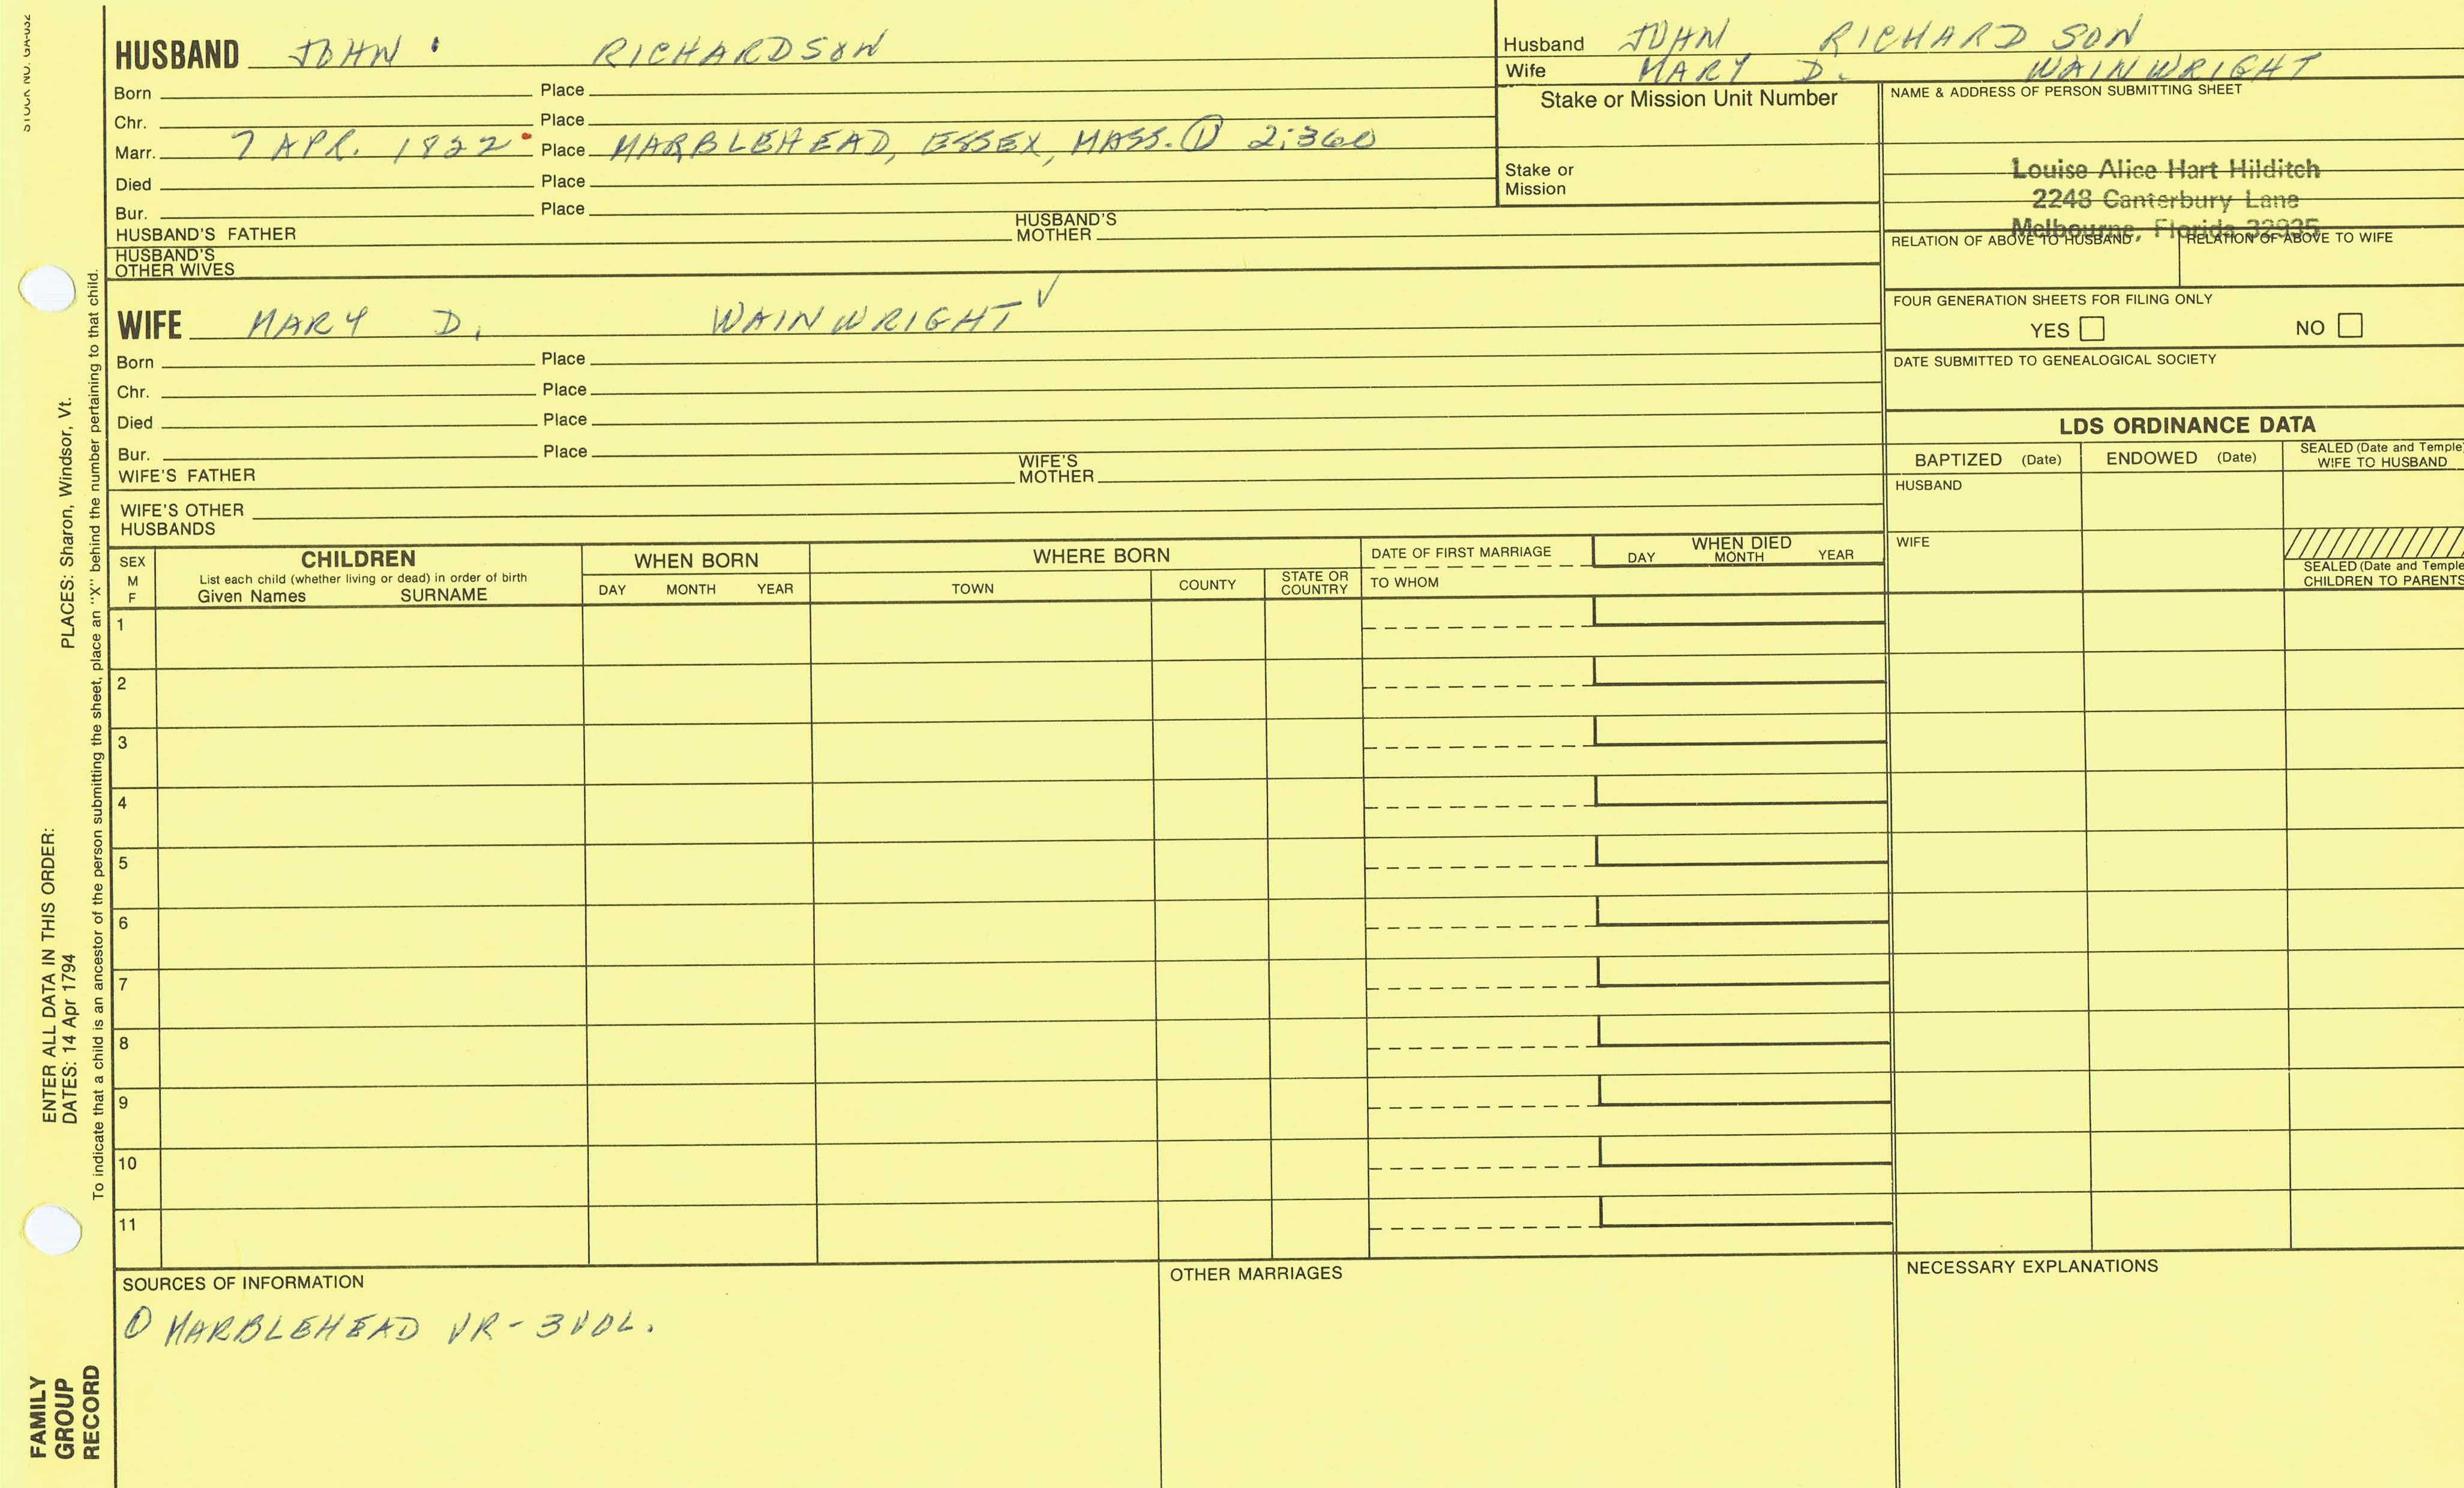 STOCK NO. GA-032
HUSBAND JOHN RICHARDSON
Born Place
Chr. Place
Marr. 7 APR. 1822 Place MARBLEHEAD, ESSEX, MASS. ① 2:360
Died Place
Bur. Place
HUSBAND'S FATHER HUSBAND'S MOTHER
HUSBAND'S OTHER WIVES
WIFE MARY D. WAINWRIGHT ✓
Born Place
Chr. Place
Died Place
Bur. Place
WIFE'S FATHER WIFE'S MOTHER
WIFE'S OTHER HUSBANDS
Husband JOHN RICHARDSON
Wife MARY D. WAINWRIGHT
Stake or Mission Unit Number
Stake or Mission
NAME & ADDRESS OF PERSON SUBMITTING SHEET
Louise Alice Hart Hilditch
2248 Canterbury Lane
Melbourne, Florida 32935
RELATION OF ABOVE TO HUSBAND RELATION OF ABOVE TO WIFE
FOUR GENERATION SHEETS FOR FILING ONLY
YES NO
DATE SUBMITTED TO GENEALOGICAL SOCIETY
LDS ORDINANCE DATA
BAPTIZED (Date) ENDOWED (Date) SEALED (Date and Temple) WIFE TO HUSBAND
HUSBAND
WIFE
SEALED (Date and Temple) CHILDREN TO PARENTS
SEX M F
CHILDREN
List each child (whether living or dead) in order of birth
Given Names SURNAME
WHEN BORN
DAY MONTH YEAR
WHERE BORN
TOWN COUNTY STATE OR COUNTRY
DATE OF FIRST MARRIAGE
TO WHOM
WHEN DIED
DAY MONTH YEAR
1
2
3
4
5
6
7
8
9
10
11
SOURCES OF INFORMATION
① MARBLEHEAD VR - 3 VOL.
OTHER MARRIAGES
NECESSARY EXPLANATIONS
ENTER ALL DATA IN THIS ORDER:
DATES: 14 Apr 1794 PLACES: Sharon, Windsor, Vt.
To indicate that a child is an ancestor of the person submitting the sheet, place an "X" behind the number pertaining to that child.
FAMILY
GROUP
RECORD